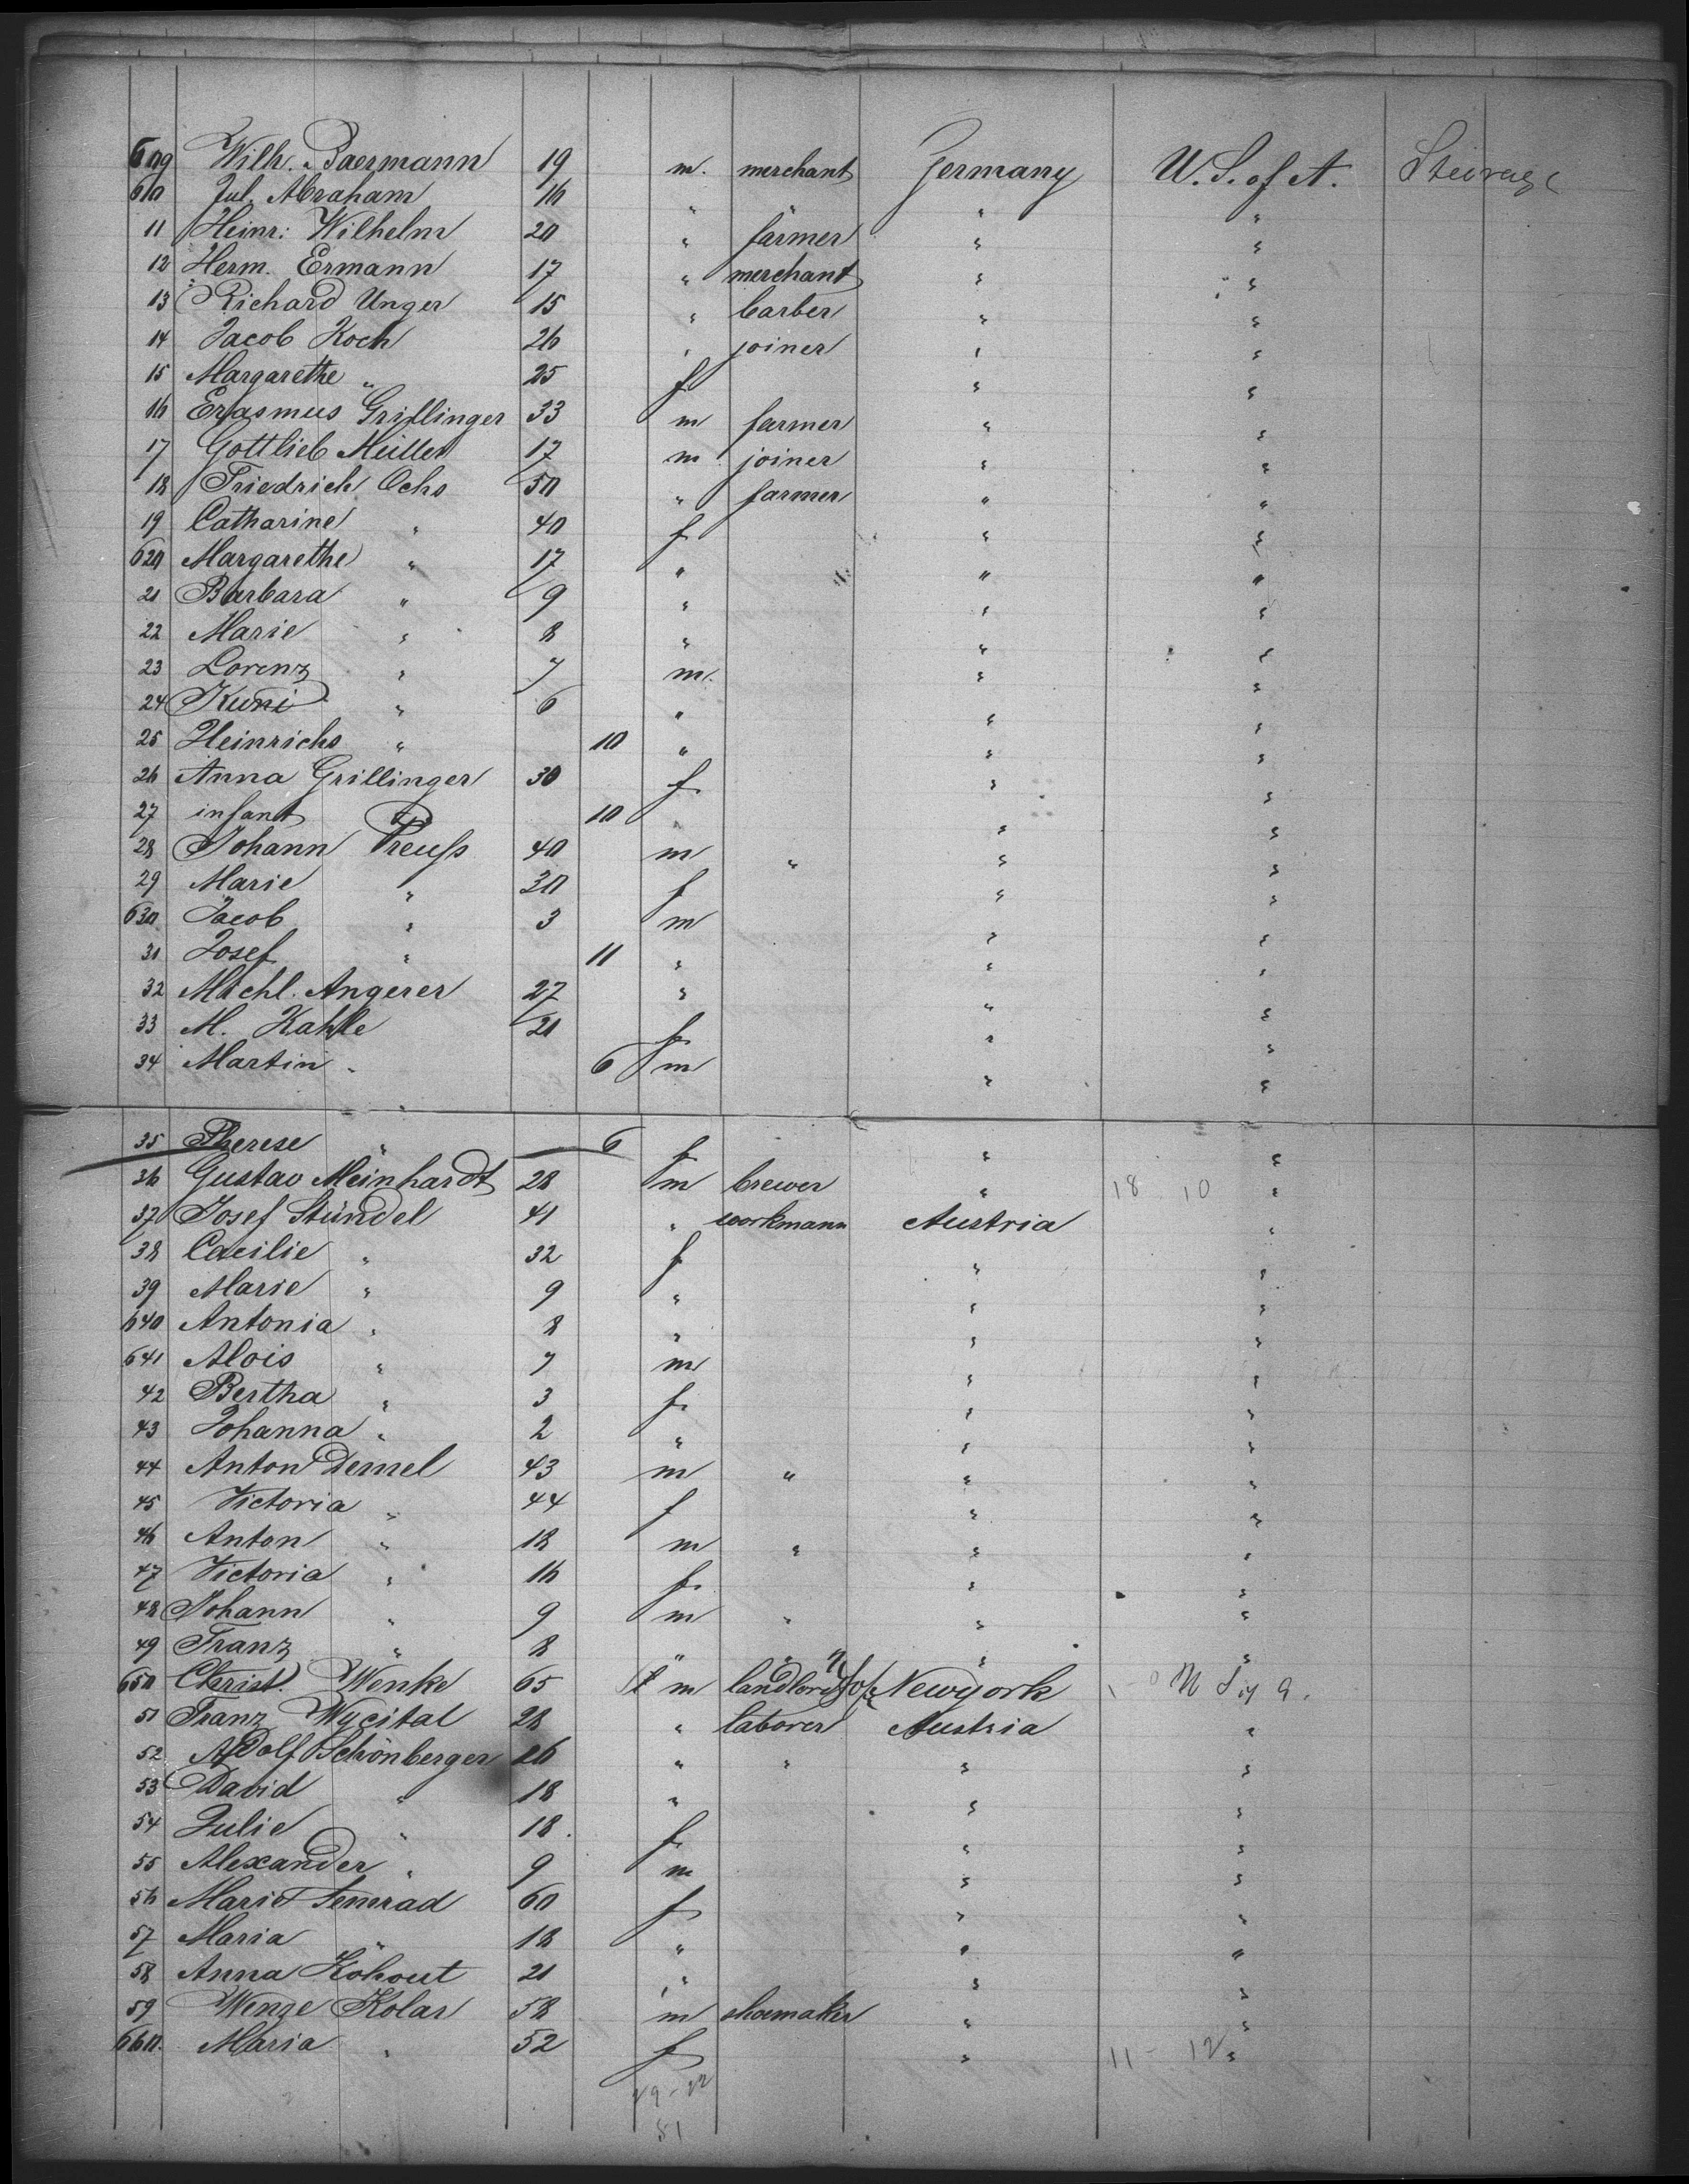 609 Wilh. Baermann 19 m. merchant Germany U. S. of A. Steerage
610 Jul. Abraham 16 " " " "
11 Heinr: Wilhelm 20 " farmer " "
12 Herm. Ermann 17 " merchant " "
13 Richard Unger 15 " barber " "
14 Jacob Koch 26 " joiner " "
15 Margarethe " 25 f " "
16 Erasmus Grillinger 33 m farmer " "
17 Gottlieb Müller 17 m joiner " "
18 Friedrich Ochs 50 " farmer " "
19 Catharine " 40 f " "
620 Margarethe " 17 " " "
21 Barbara " 9 " " "
22 Marie " 8 " " "
23 Lorenz " 7 m. " "
24 Kuni " 6 " " "
25 Heinrichs " 10 " " "
26 Anna Grillinger 30 f " "
27 infant 10 " " "
28 Johann Preuss 40 m " " "
29 Marie " 30 f " "
630 Jacob " 3 m " "
31 Josef " 11 " " "
32 Michl. Angerer 27 " " "
33 M. Kahle 21 f " "
34 Martin " 6 m " "
35 Therese " 6 f " "
36 Gustav Meinhardt 28 m brewer " 18 10 "
37 Josef Stündel 41 " workmann Austria "
38 Cacilie " 32 f " "
39 Marie " 9 " " "
640 Antonia " 8 " " "
641 Alois " 7 m " "
42 Bertha " 3 f " "
43 Johanna " 2 " " "
44 Anton Demel 43 m " " "
45 Victoria " 44 f " "
46 Anton " 18 m " " "
47 Victoria " 16 f " "
48 Johann " 9 m " " "
49 Franz " 8 " " " "
650 Christ. Wenke 65 m landlord Newyork
51 Franz Wycital 28 " laborer Austria "
52 Adolf Schönberger 26 " " " "
53 David " 18 " " "
54 Julie " 18 f " "
55 Alexander " 9 m " "
56 Marie Semrad 60 f " "
57 Maria " 18 " " "
58 Anna Kohout 21 " " "
59 Wenze Kolar 58 m shoemaker " "
660. Maria " 52 f " 11 - 12 "
29 - 22
51